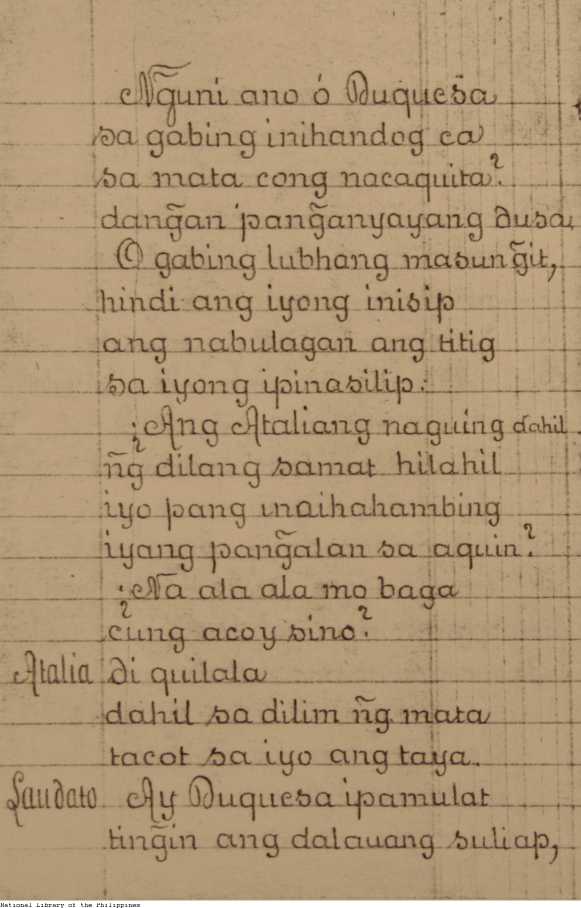 Ng̃uni ano ó Duquesa
sa gabing inihandog ca
sa mata cong nacaquita?
dang̃an pang̃anyayang dusa,
O gabing lubhang masung̃it,
hindi ang iyong inisip
ang nabulagan ang titig
sa iyong ipinasilip:
¿Ang Ataliang naguing dahil
ñg dilang samat hilahil
iyo pang inaihahambing
iyang pang̃alan sa aquin?
¿Na ala ala mo baga
cung acoy sino?
Atalia di quilala
dahil sa dilim ñg mata
tacot sa iyo ang taya.
Laudato Ay Duquesa ipamulat
ting̃in ang dalauang suliap,
National Library of the Philippines